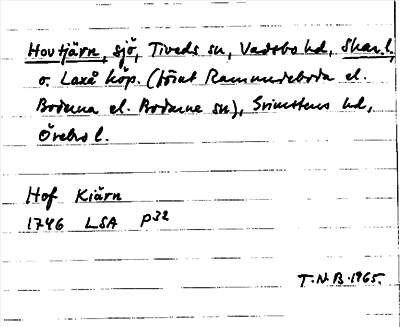 Hovtjärn, sjö, Tiveds sn, Vadsbo hd, Skar. l.
o. Laxå köp. (förut Rammundeboda el.
Bodarna el. Bodarne sn), Grimstens hd,
Örebro l.
Hof Kiärn
1746 LSA P32
T.N.B. 1965.